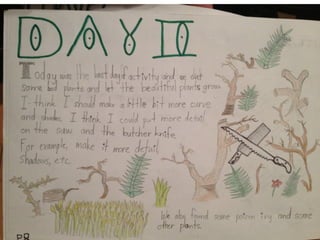 DAY II
Today was the last day's activity and we cut
some bad plants and let the beautiful plants grow.
I think I should make a little bit more curve
and shades. I think I could put more detail
on the saw and the butcher knife.
For example, make it more detail,
shadows, etc.
We also found some poison ivy and some
other plants.
P8